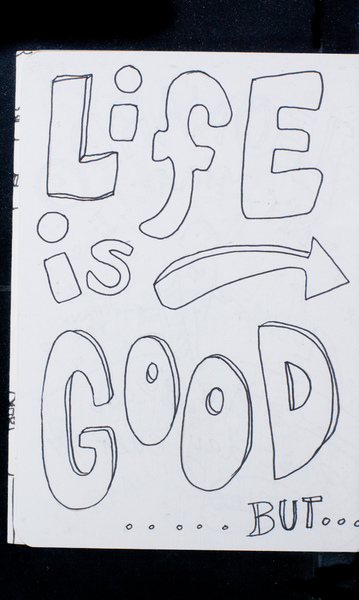 LifE
is
GOOD
...... BUT...